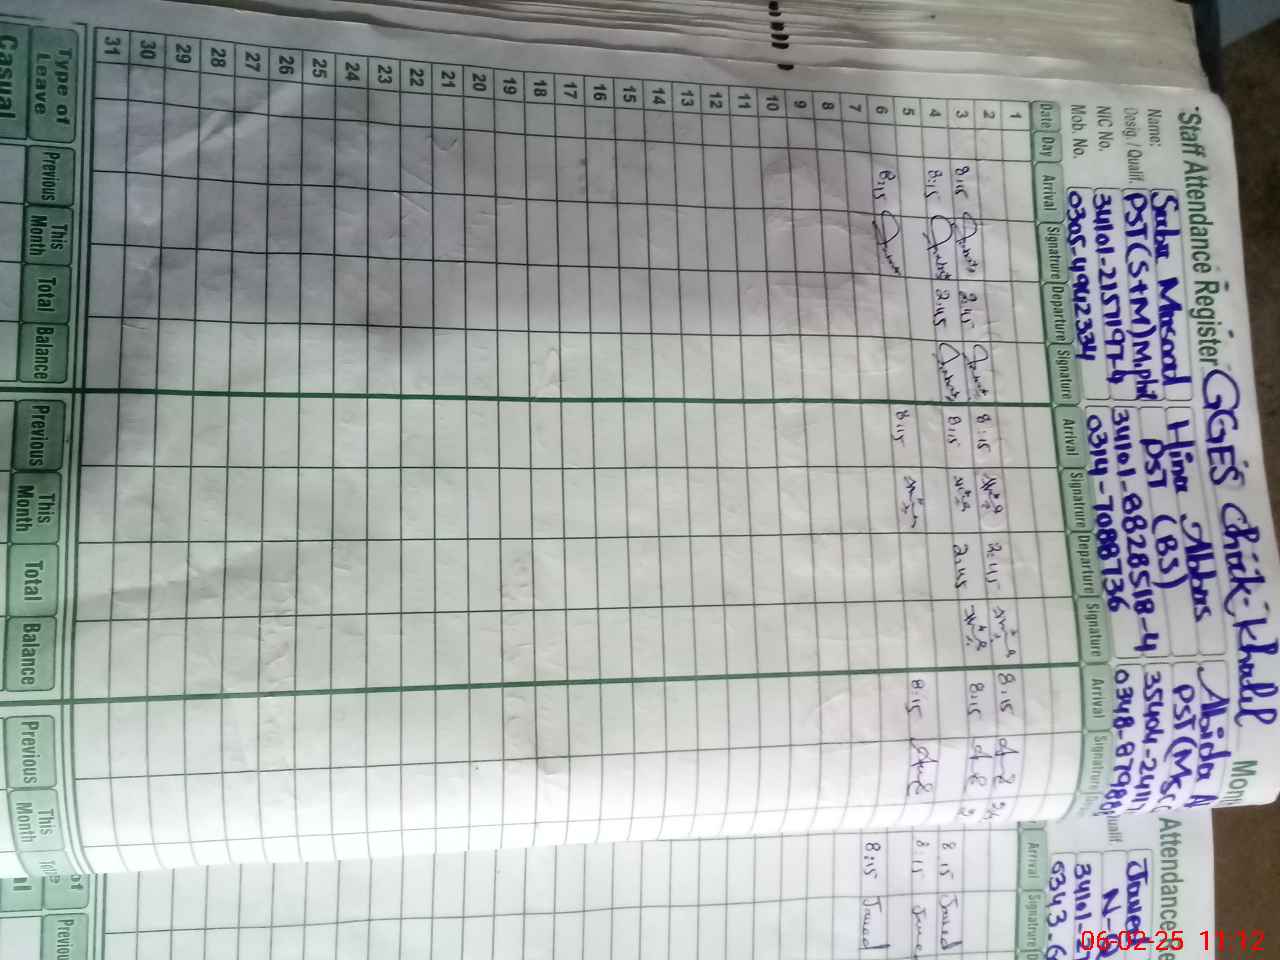 Staff Attendance Register GGES Chak-Khalil Mon
Name: Saba Masood Hina Abbas Abida A
Desig. / Qualif. PST(S+M)M.phil PST (BS) PST(MSC
NIC No. 34101-2157197-4 34101-8828518-4 35404-2411
Mob. No. 0305-4942334 0314-7088736 0348-87988
Date Day Arrival Signatrure Departure Signature Arrival Signatrure Departure Signature Arrival Signatrure
1
2 8:15 2:45 8:15
3 8:15 2:45 8:15 2:45 8:15
4 8:15 2:45
5 8:15 8:15
6 8:15
7
8
9
10
11
12
13
14
15
16
17
18
19
20
21
22
23
24
25
26
27
28
29
30
31
Type of Leave Previous This Month Total Balance Previous This Month Total Balance Previous This Month
Casual
Attendance Re
Javed
N-Q
34101-27
0343-6
Arrival Signatrure
8:15 Javed
8:15 Jave
8:15 Javed
Previou
06-02-25 11:12